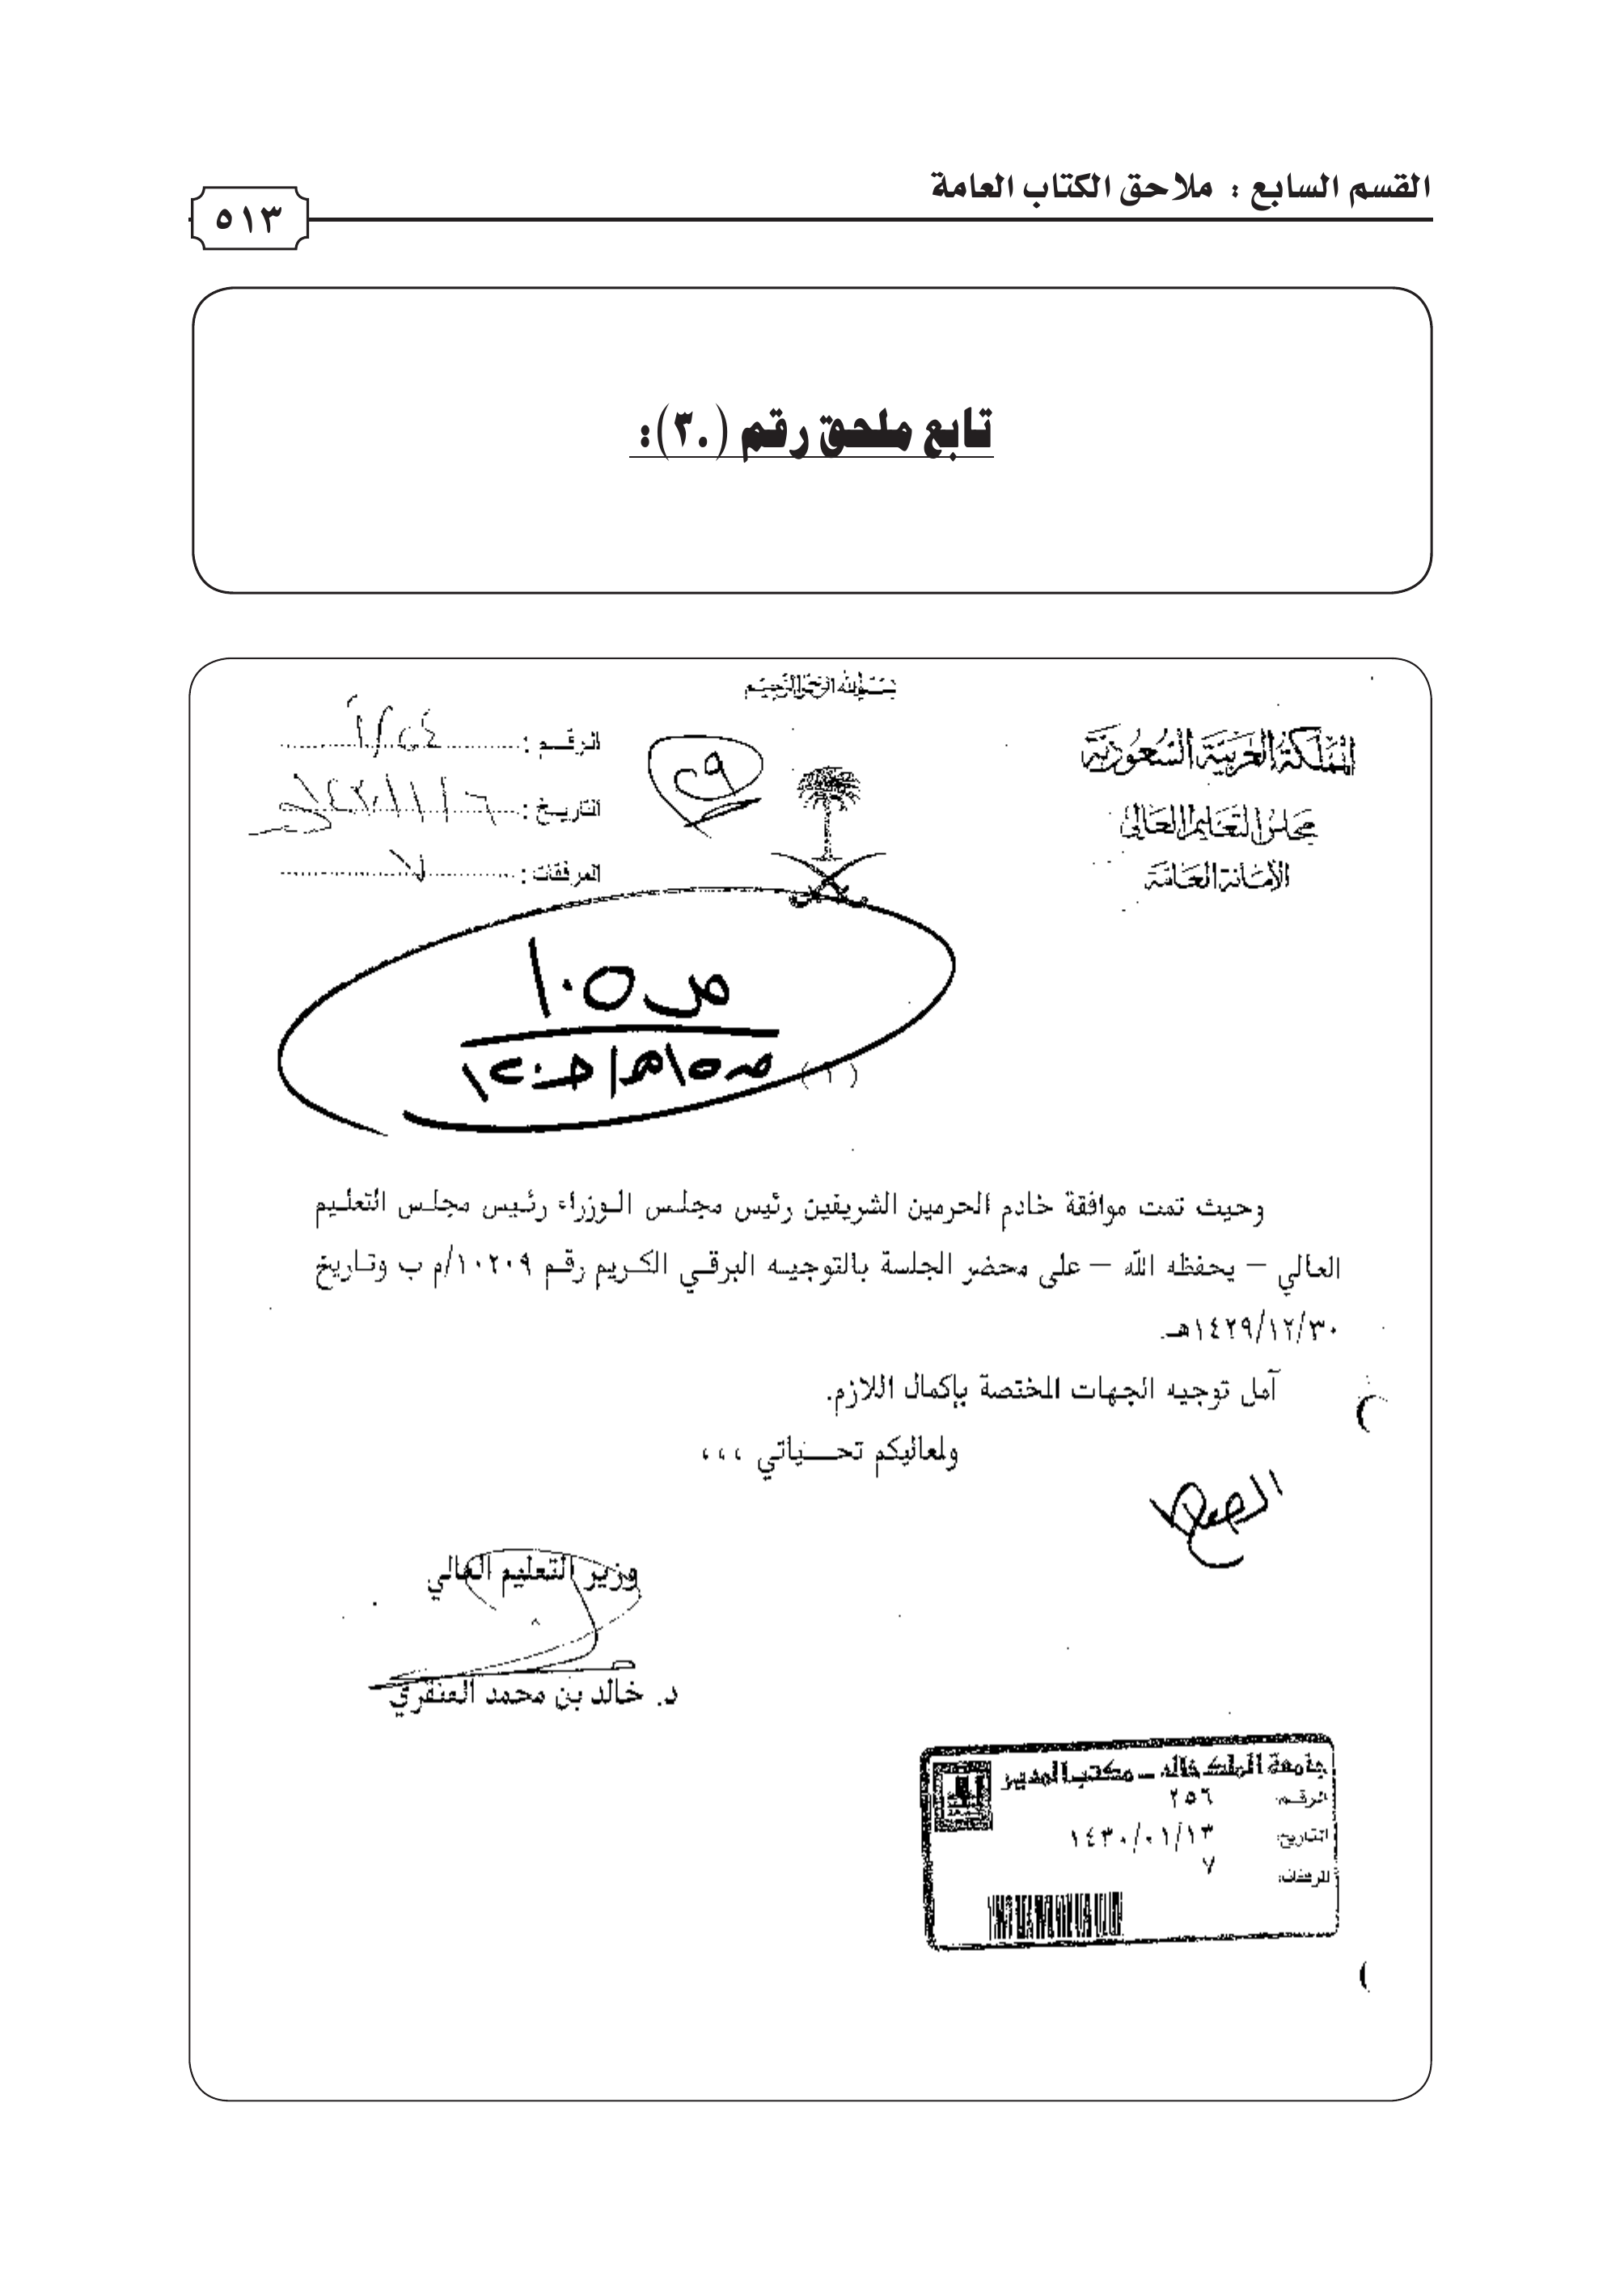 القسم السابع : ملاحق الكتاب العامة
٥١٣
تابع ملحق رقم (٣٠):
بسم الله الرحمن الرحيم
المملكة العربية السعودية
مجلس التعليم العالي
الأمانة العامة
الرقم :
التاريخ : ١٤٣٠/١/٦هـ
المرفقات :
٢٩
ص ١٠٥
وحيث تمت موافقة خادم الحرمين الشريفين رئيس مجلس الوزراء رئيس مجلس التعليم
العالي – يحفظه الله – على محضر الجلسة بالتوجيه البرقي الكريم رقم ١٠٢٠٩/م ب وتاريخ
١٤٢٩/١٢/٣٠هـ.
آمل توجيه الجهات المختصة بإكمال اللازم.
ولمعاليكم تحـــياتي ،،،
وزير التعليم العالي
د. خالد بن محمد العنقري
جامعة الملك خالد – مكتب المدير
الرقم: ٢٥٦
التاريخ: ١٤٣٠/٠١/١٣
المرفقات: ٧